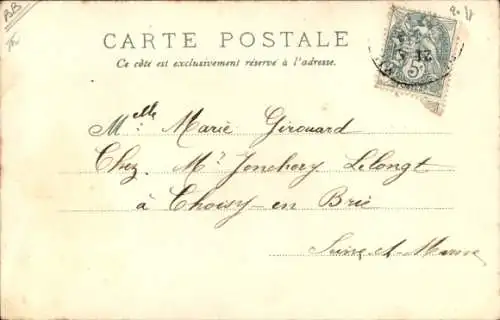 BB
CARTE POSTALE
Ce côté est exclusivement réservé à l'adresse.
Melle Marie Girouard
Chez Mr Jonchery Lelongt
à Choisy-en Brie
Seine-et-Marne